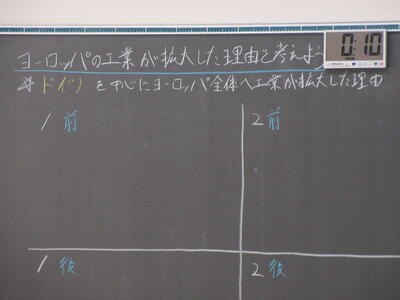 ヨーロッパの工業が拡大した理由を考えよう
0:10
☆ドイツを中心にヨーロッパ全体へ工業が拡大した理由
1 前
2 前
1 後
2 後